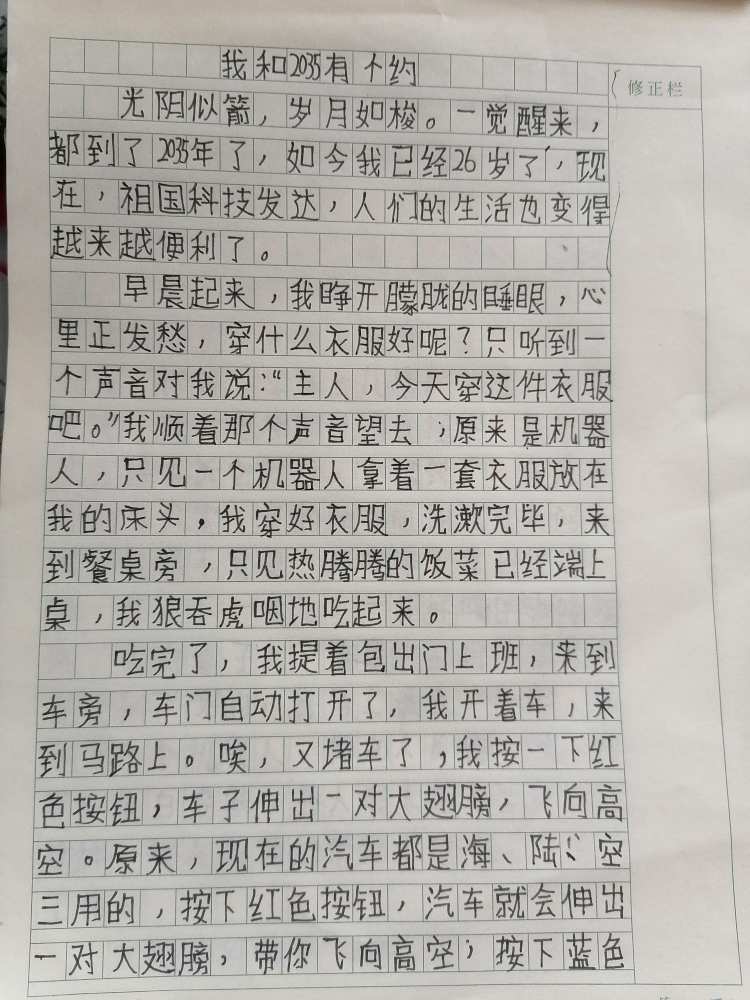 我和2035有个约
修正栏
光阴似箭，岁月如梭。一觉醒来，
都到了2035年了，如今我已经26岁了，现
在，祖国科技发达，人们的生活也变得
越来越便利了。
早晨起来，我睁开朦胧的睡眼，心
里正发愁，穿什么衣服好呢？只听到一
个声音对我说：“主人，今天穿这件衣服
吧。”我顺着那个声音望去，原来是机器
人，只见一个机器人拿着一套衣服放在
我的床头，我穿好衣服，洗漱完毕，来
到餐桌旁，只见热腾腾的饭菜已经端上
桌，我狼吞虎咽地吃起来。
吃完了，我提着包出门上班，来到
车旁，车门自动打开了，我开着车，来
到马路上。唉，又堵车了，我按一下红
色按钮，车子伸出一对大翅膀，飞向高
空。原来，现在的汽车都是海、陆、空
三用的，按下红色按钮，汽车就会伸出
一对大翅膀，带你飞向高空；按下蓝色